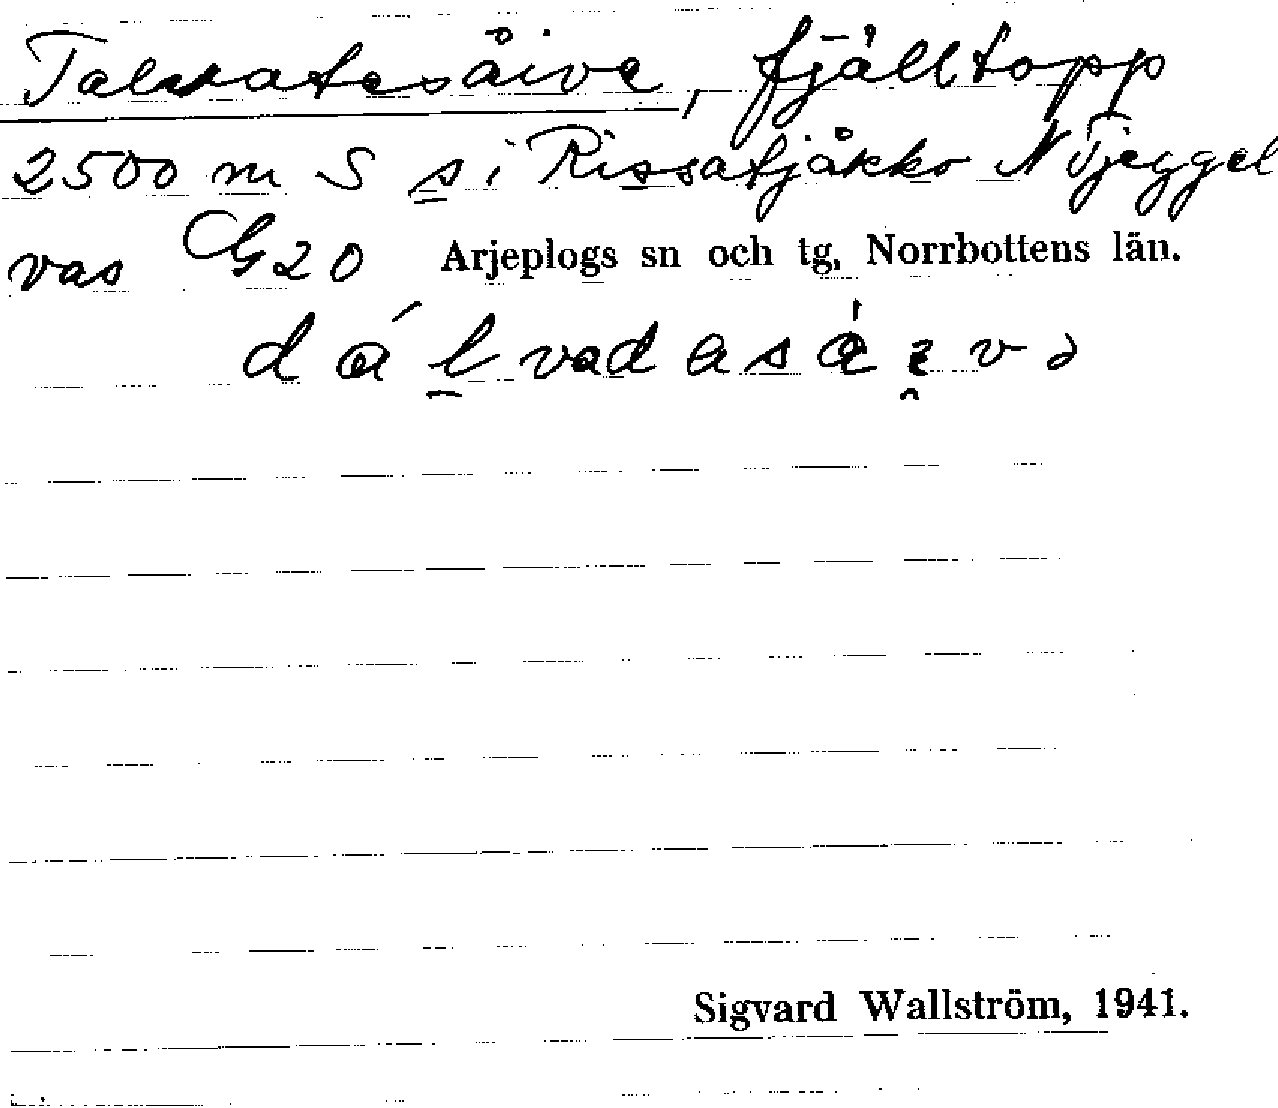 Talvatesåive, fjälltopp
2500 m S si Rissatjåkko N Tjeggel
vas G20 Arjeplogs sn och tg, Norrbottens län.
dálvadasáịvə
Sigvard Wallström, 1941.